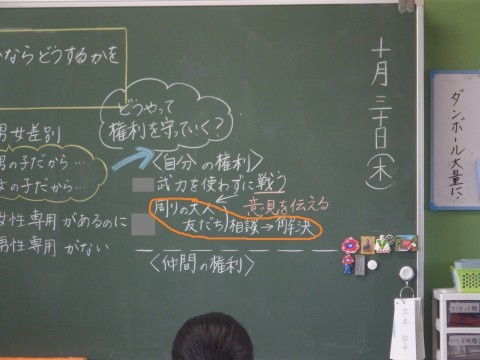 ならどうするかを
十月三十日(木)
ダンボール大量に!
どうやって
権利を守っていく?
男女差別
男の子だから…
女の子だから…
女性専用があるのに
男性専用がない
〈自分の権利〉
武力を使わずに戦う
意見を伝える
周りの大人
友だち
相談→解決
〈仲間の権利〉